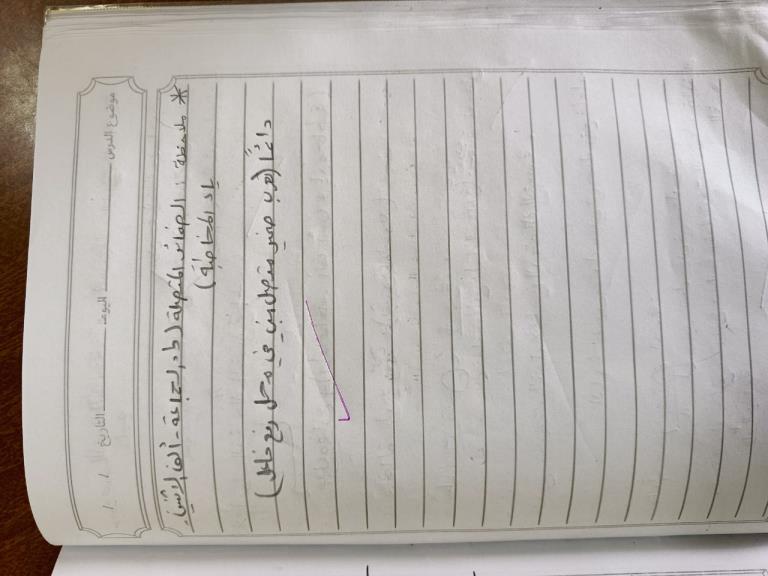 موضوع الدرس اليوم التاريخ / /
* ملاحظة : الضمائر المتصلة (واو الجماعة - ألف الاثنين
ياء المخاطبة)
دائمًا (تعرب ضمير متصل مبني في محل رفع فاعل)